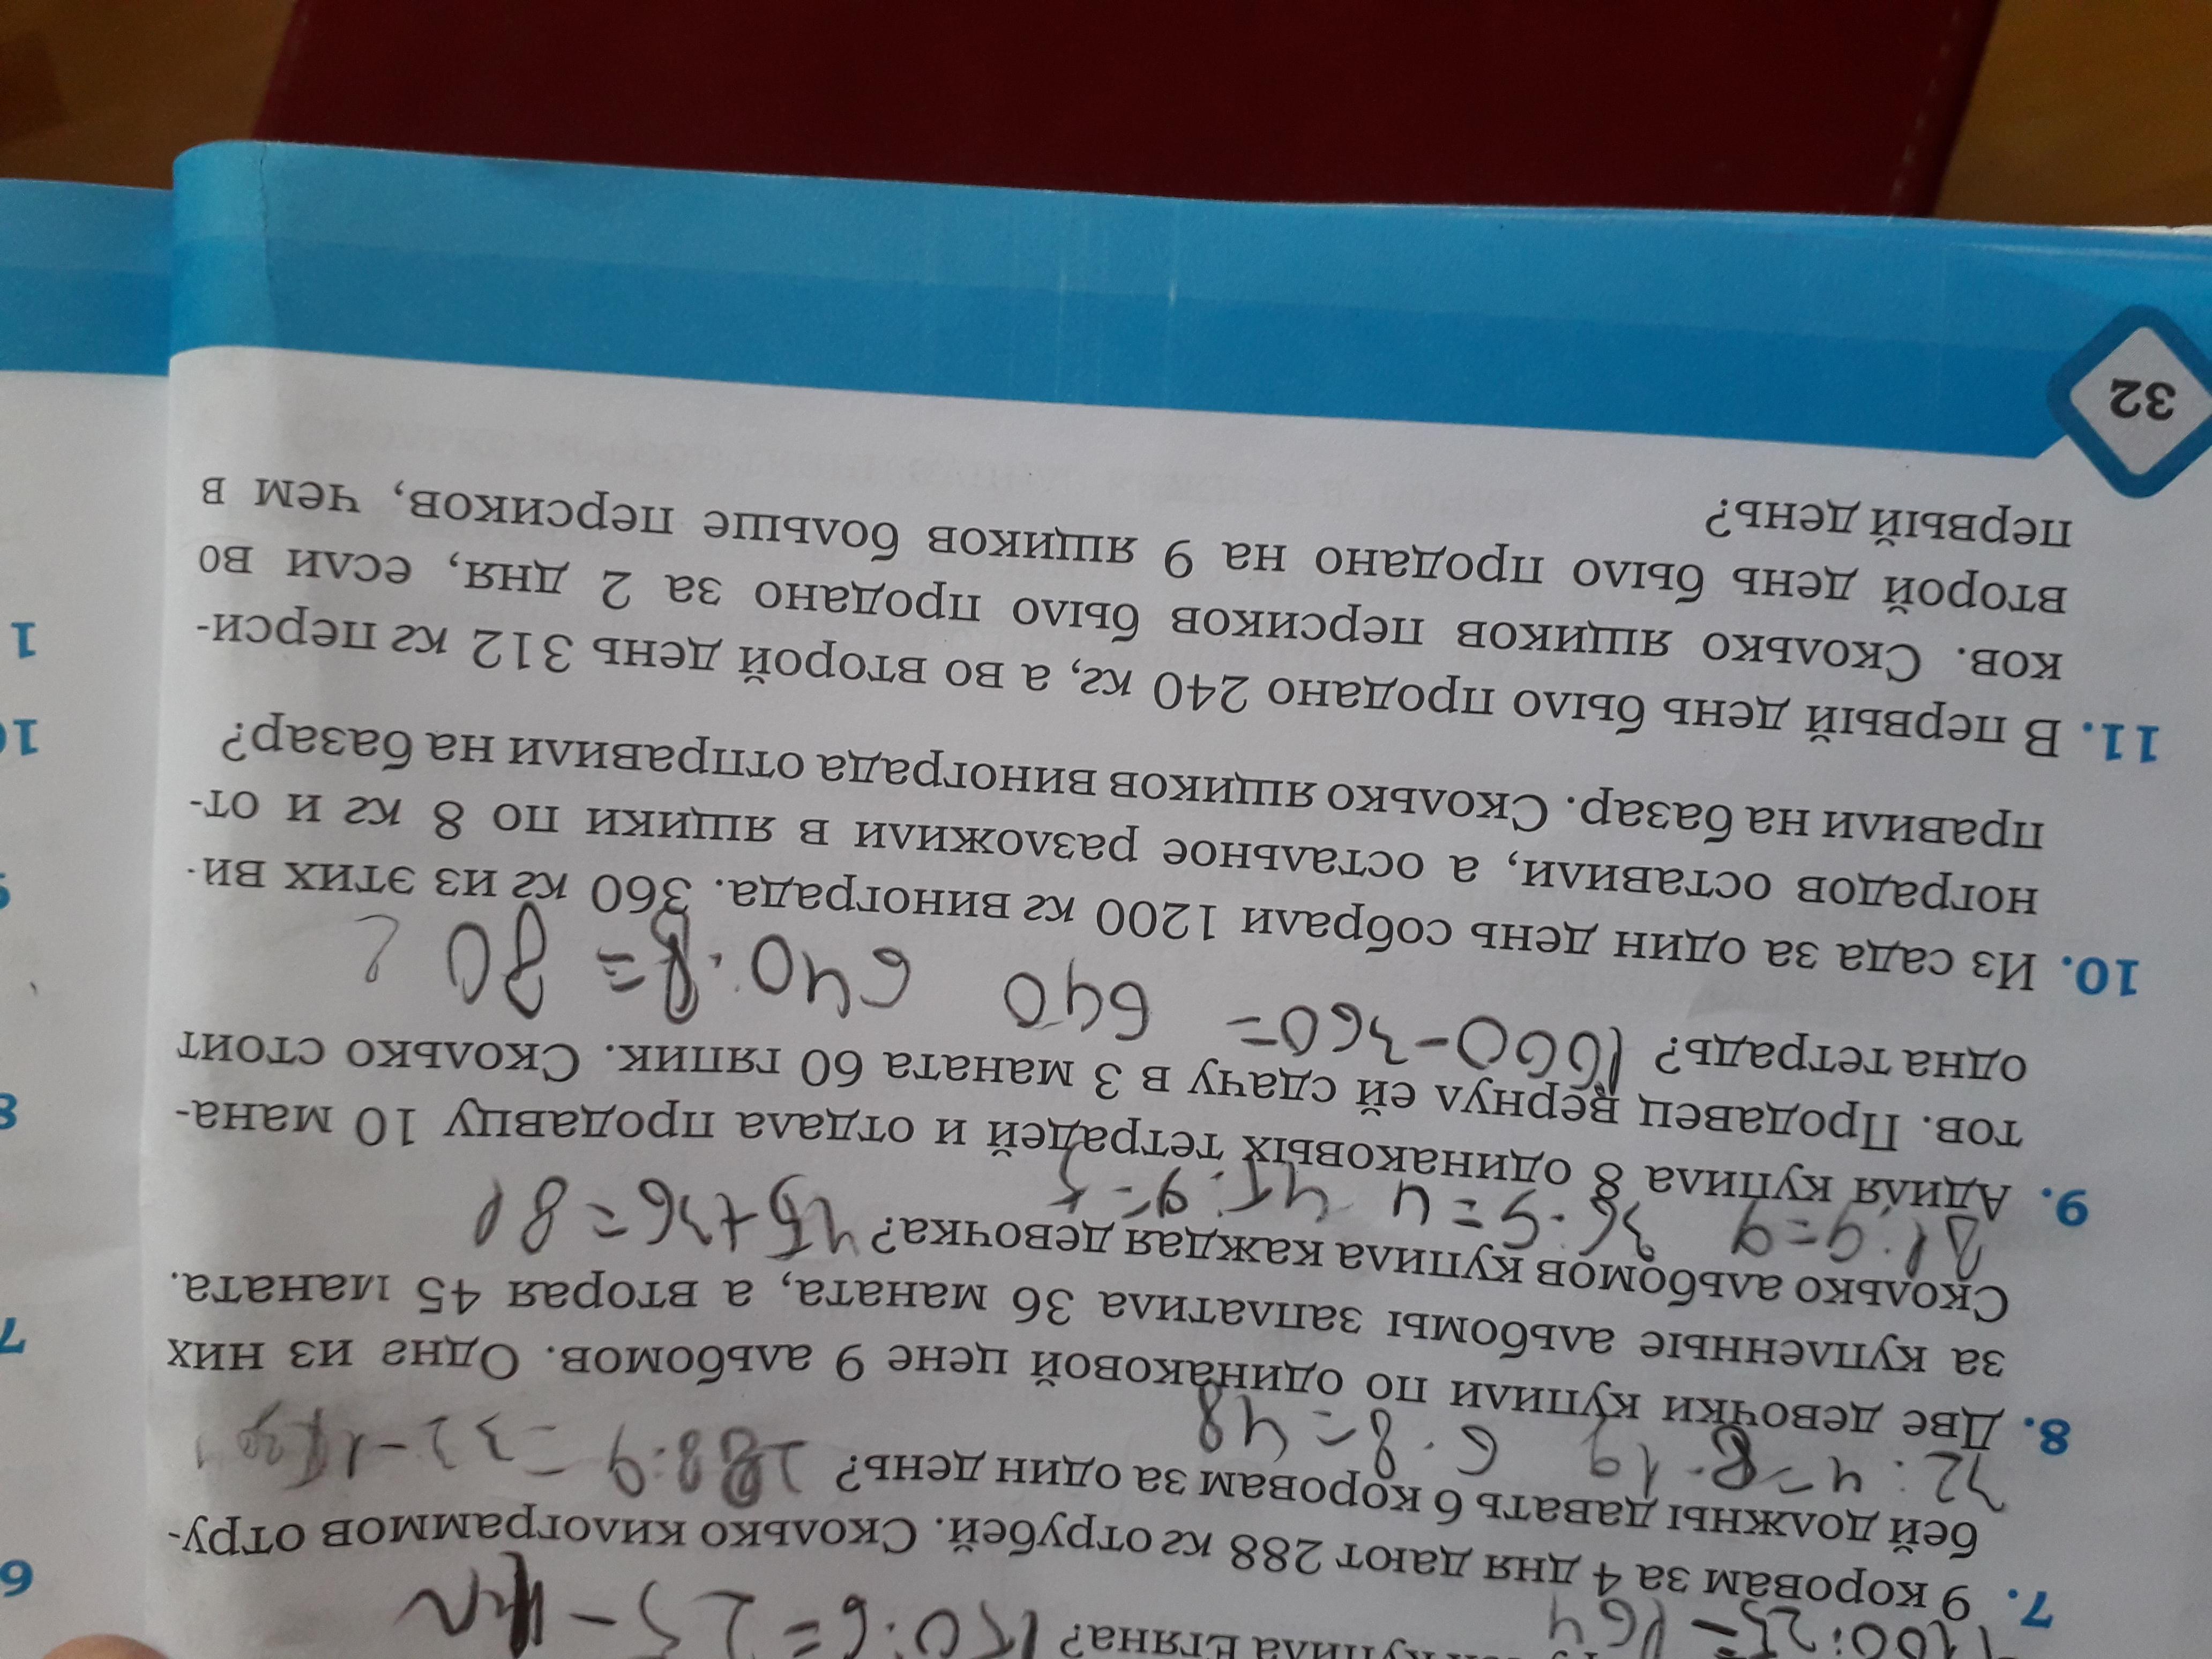 купила Егяна? 150:6=25-
100:25=
7. 9 коровам за 4 дня дают 288 кг отрубей. Сколько килограммов отру-
бей должны давать 6 коровам за один день? 288:9=32-1
32:4=8-1 6·8=48
8. Две девочки купили по одинаковой цене 9 альбомов. Одна из них
за купленные альбомы заплатила 36 маната, а вторая 45 маната.
Сколько альбомов купила каждая девочка? 45+36=81
81:9=9 36:9=4 45:9=5
9. Адиля купила 8 одинаковых тетрадей и отдала продавцу 10 мана-
тов. Продавец вернул ей сдачу в 3 маната 60 гяпик. Сколько стоит
одна тетрадь? 1000-360= 640 640:8=80
10. Из сада за один день собрали 1200 кг винограда. 360 кг из этих ви-
ноградов оставили, а остальное разложили в ящики по 8 кг и от-
правили на базар. Сколько ящиков винограда отправили на базар?
11. В первый день было продано 240 кг, а во второй день 312 кг перси-
ков. Сколько ящиков персиков было продано за 2 дня, если во
второй день было продано на 9 ящиков больше персиков, чем в
первый день?
32
6
7
8
9
10
1